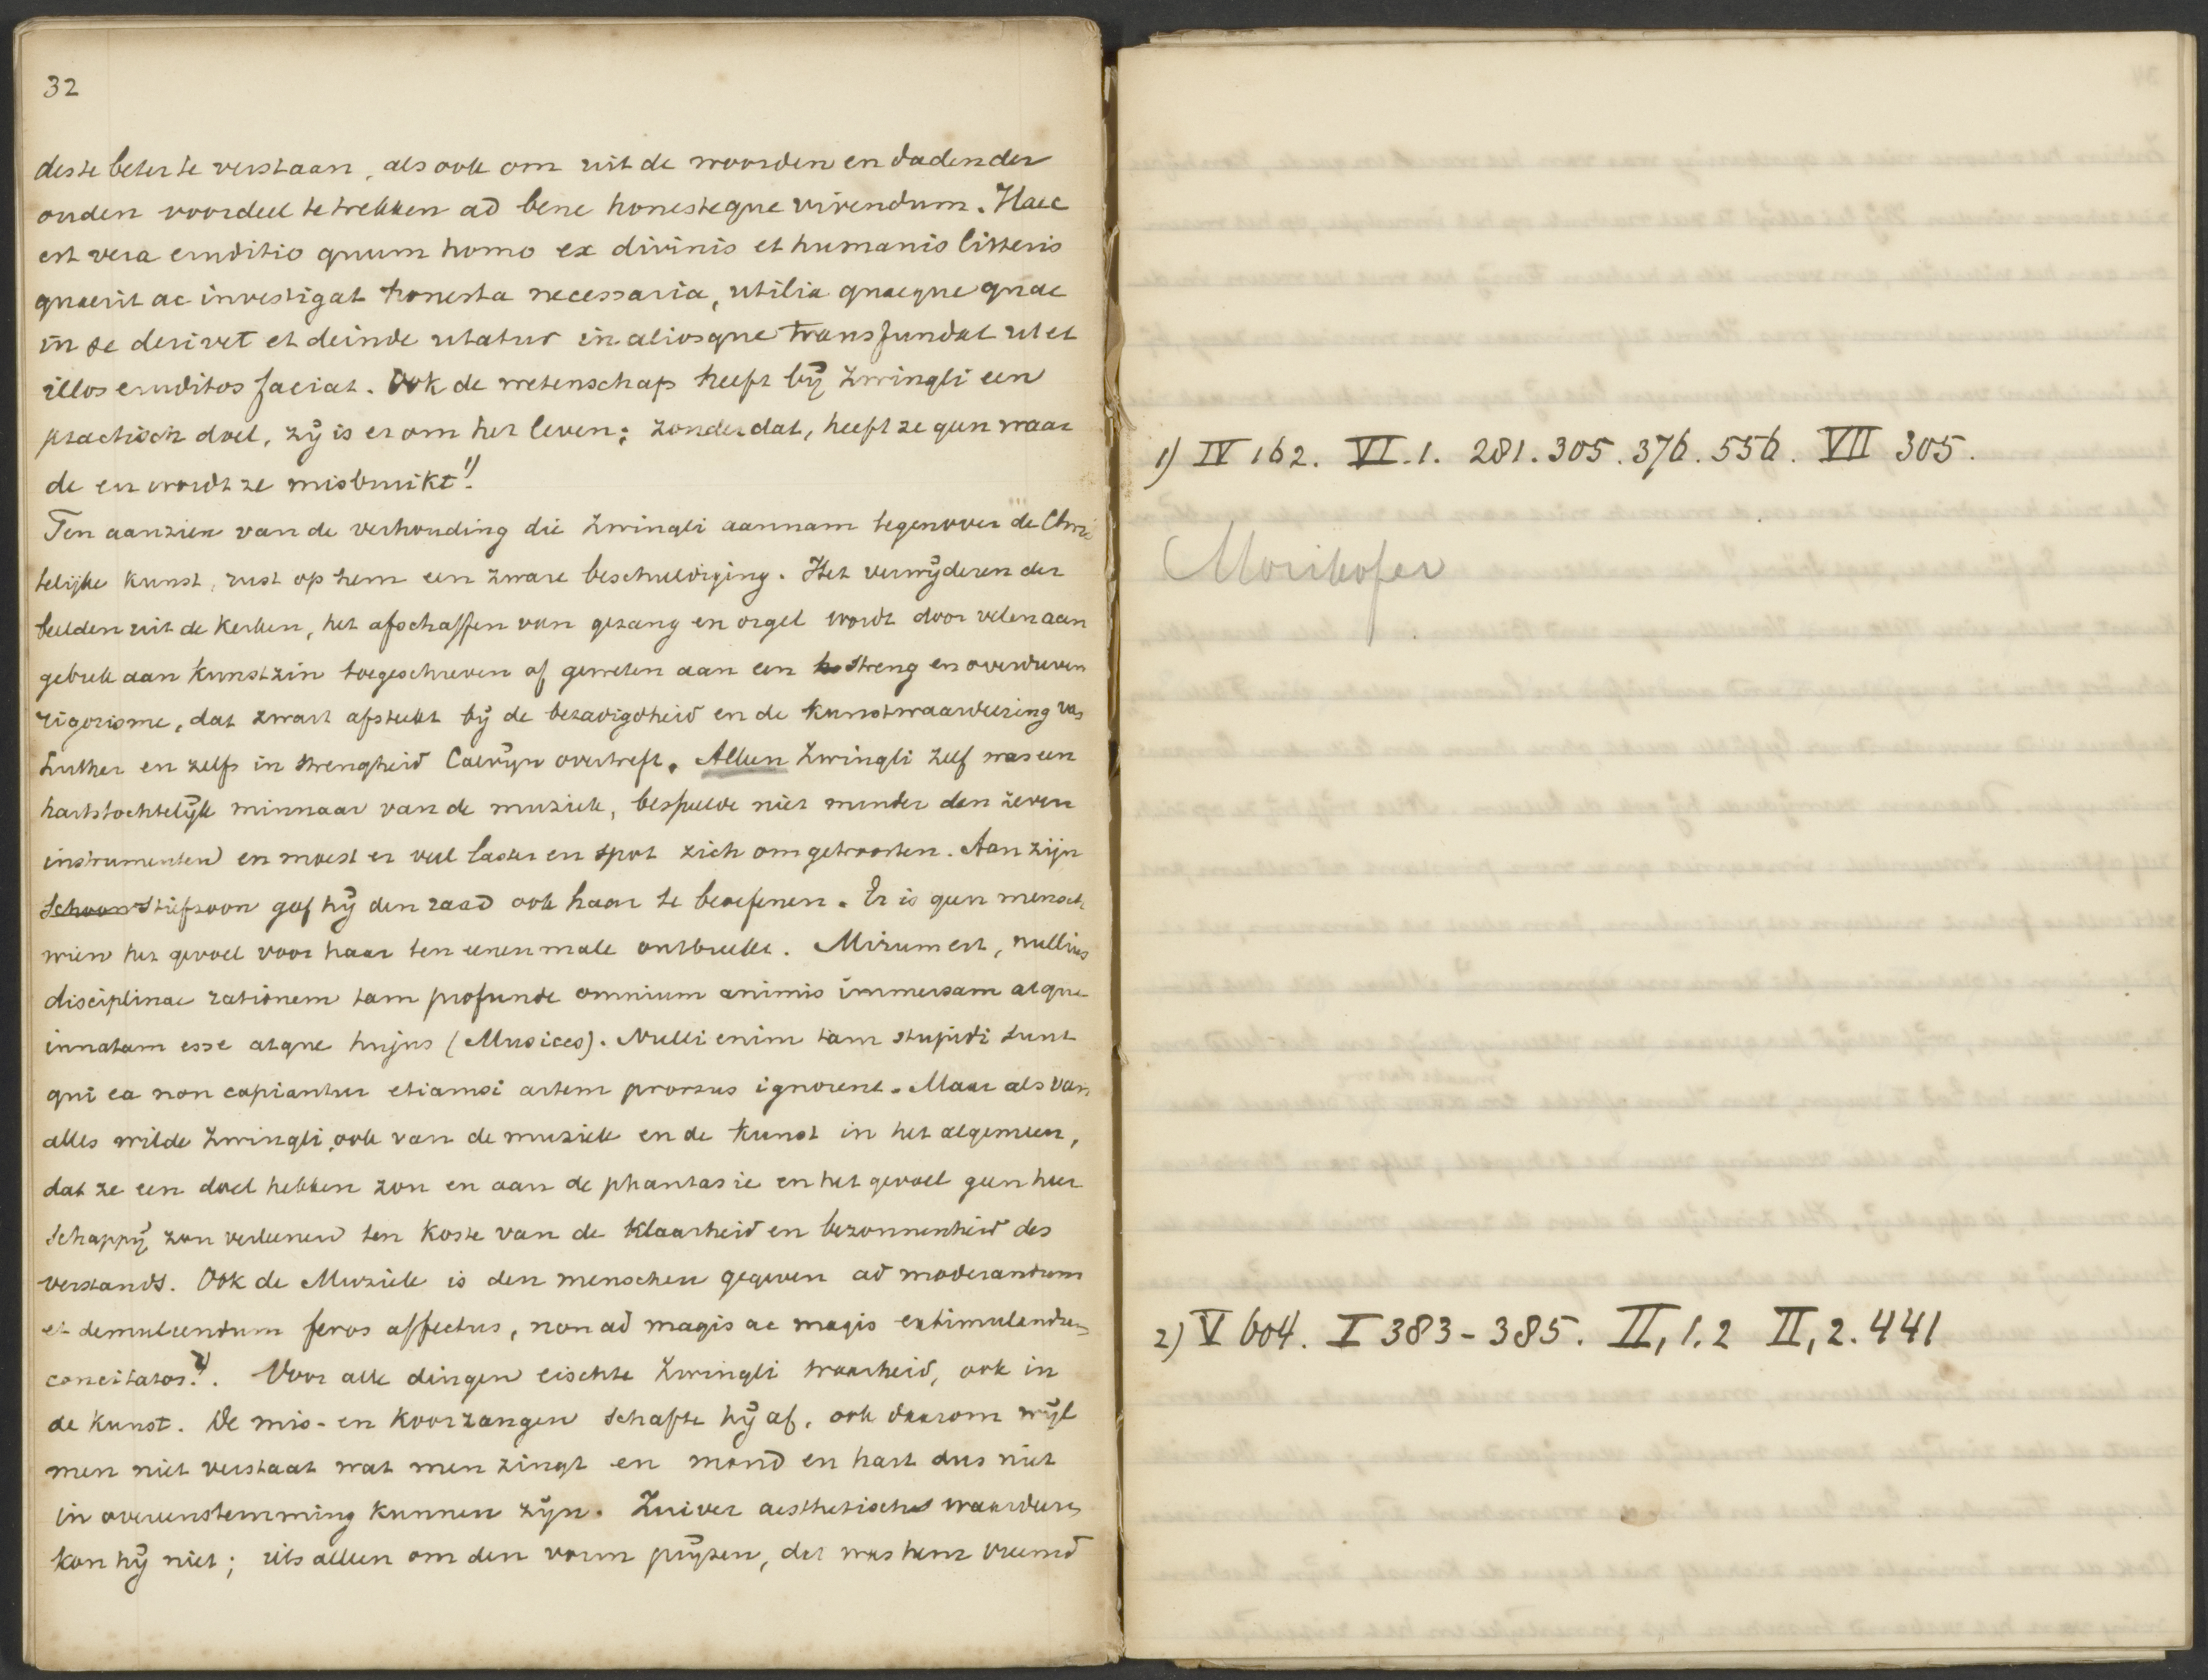 32
deste beter te verstaan, als ook om uit de woorden en daden der
ouden voordeel te trekken ad bene honesteque vivendum. Haec
est vera eruditio quum homo ex divinis et humanis litteris
quaerit ac investigat honesta necessaria, utilia quaeque quae
in se derivet et deinde utatur in aliosque transfundat ut et
illos eruditos faciat. Ook de wetenschap heeft bij Zwingli een
practisch doel, zij is er om het leven; zonder dat, heeft ze geen waar
de en wordt ze misbruikt 1).
Ten aanzien van de verhouding die Zwingli aannam tegenover de Chris
telijke kunst, rust op hem een zware beschuldiging. Het verwijderen der
beelden uit de kerken, het afschaffen van gezang en orgel wordt door velen aan
gebrek aan kunstzin toegeschreven of geweten aan een streng en overdreven
rigorisme, dat zwart afsteekt bij de bezadigdheid en de kunstwaardeering van
Luther en zelfs in strengheid Calvijn overtreft. Alleen Zwingli zelf was een
hartstochtelijk minnaar van de muziek, bespeelde niet minder dan zeven
instrumenten en moest er veel laster en spot zich om getroosten. Aan zijn
Schoon stiefzoon gaf hij den raad ook haar te beoefenen. Er is geen mensch
wien het gevoel voor haar ten eenen male ontbreekt. Mirum est, nullius
disciplinae rationem tam profunde omnium animis immersam atque
innatam esse atque hujus (Musices). Nulli enim tam stupidi sunt
qui ea non capiantur etiamsi artem prorsus ignorent. Maar als van
alles wilde Zwingli, ook van de muziek en de kunst in het algemeen,
dat ze een doel hebben zou en aan de phantasie en het gevoel geen heer
schappij zou verleenen ten koste van de klaarheid en bezonnenheid des
verstands. Ook de Muziek is den menschen gegeven ad moderandum
et demulcendum feros affectus, non ad magis ac magis extimulandum
concitatos 2). Voor alle dingen eischte Zwingli waarheid, ook in
de kunst. De mis- en koorzangen schafte hij af, ook daarom wijl
men niet verstaat wat men zingt en mond en hart dus niet
in overeenstemming kunnen zijn. Zuiver aesthetisch waardeeren
kon hij niet; iets alleen om den vorm prijzen, dat was hem vreemd
1) IV 162. VI.1. 281. 305. 376. 556. VII 305.
Morikofer
2) V 604. I 383-385. II, 1.2 II, 2. 441